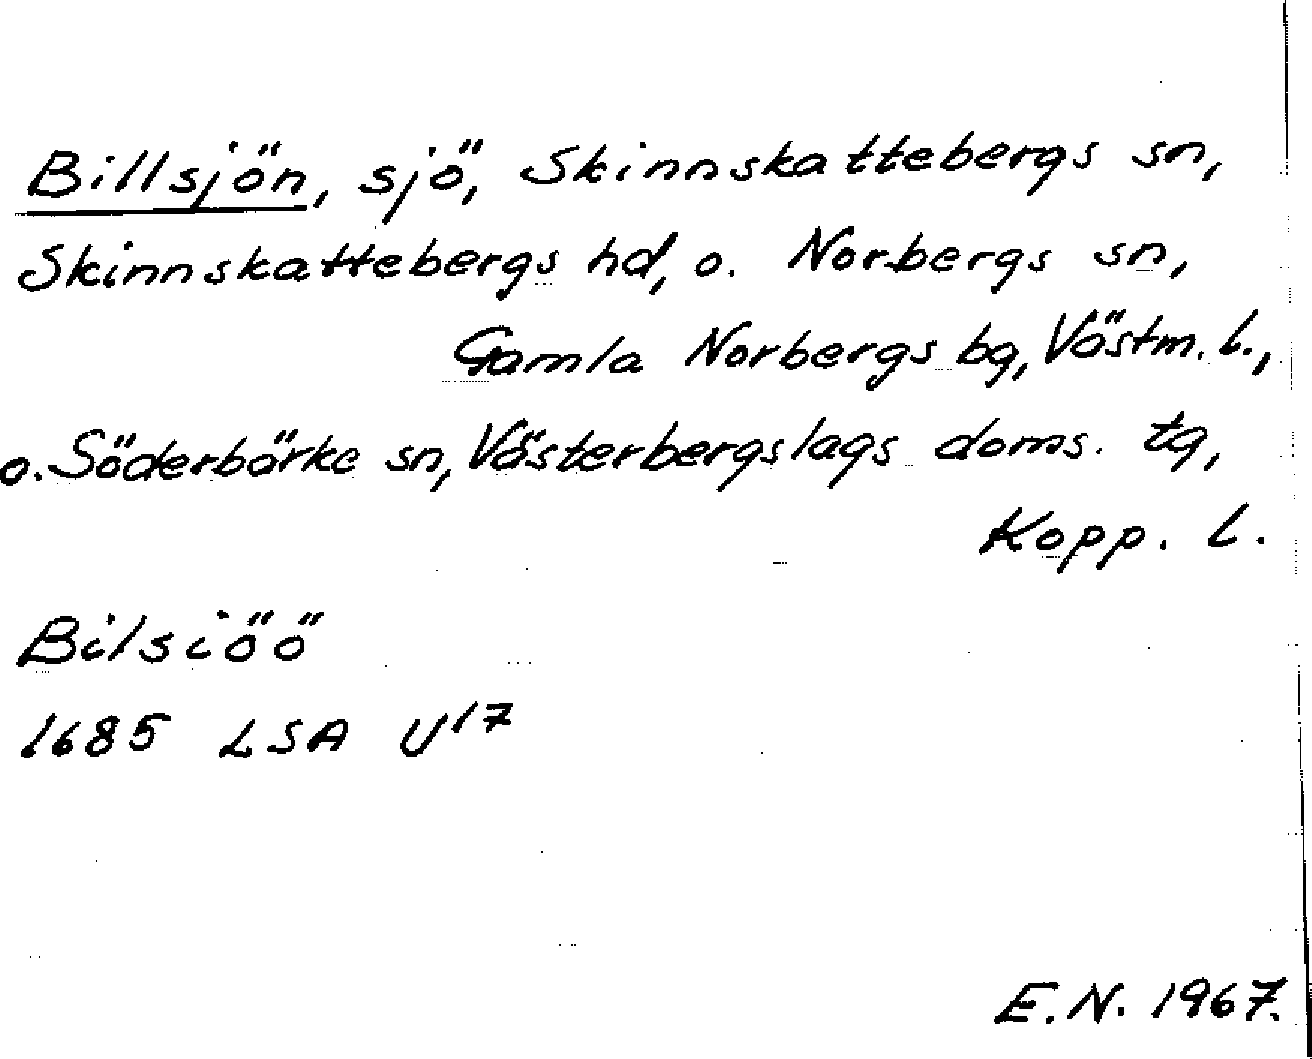 Billsjön, sjö, Skinnskattebergs sn,
Skinnskattebergs hd, o. Norbergs sn,
Gamla Norbergs bg, Västm. L.,
o. Söderbärke sn, Västerbergslags doms. tg,
Kopp. L.
Bilsiöö
1685 LSA U17
E.N. 1967.